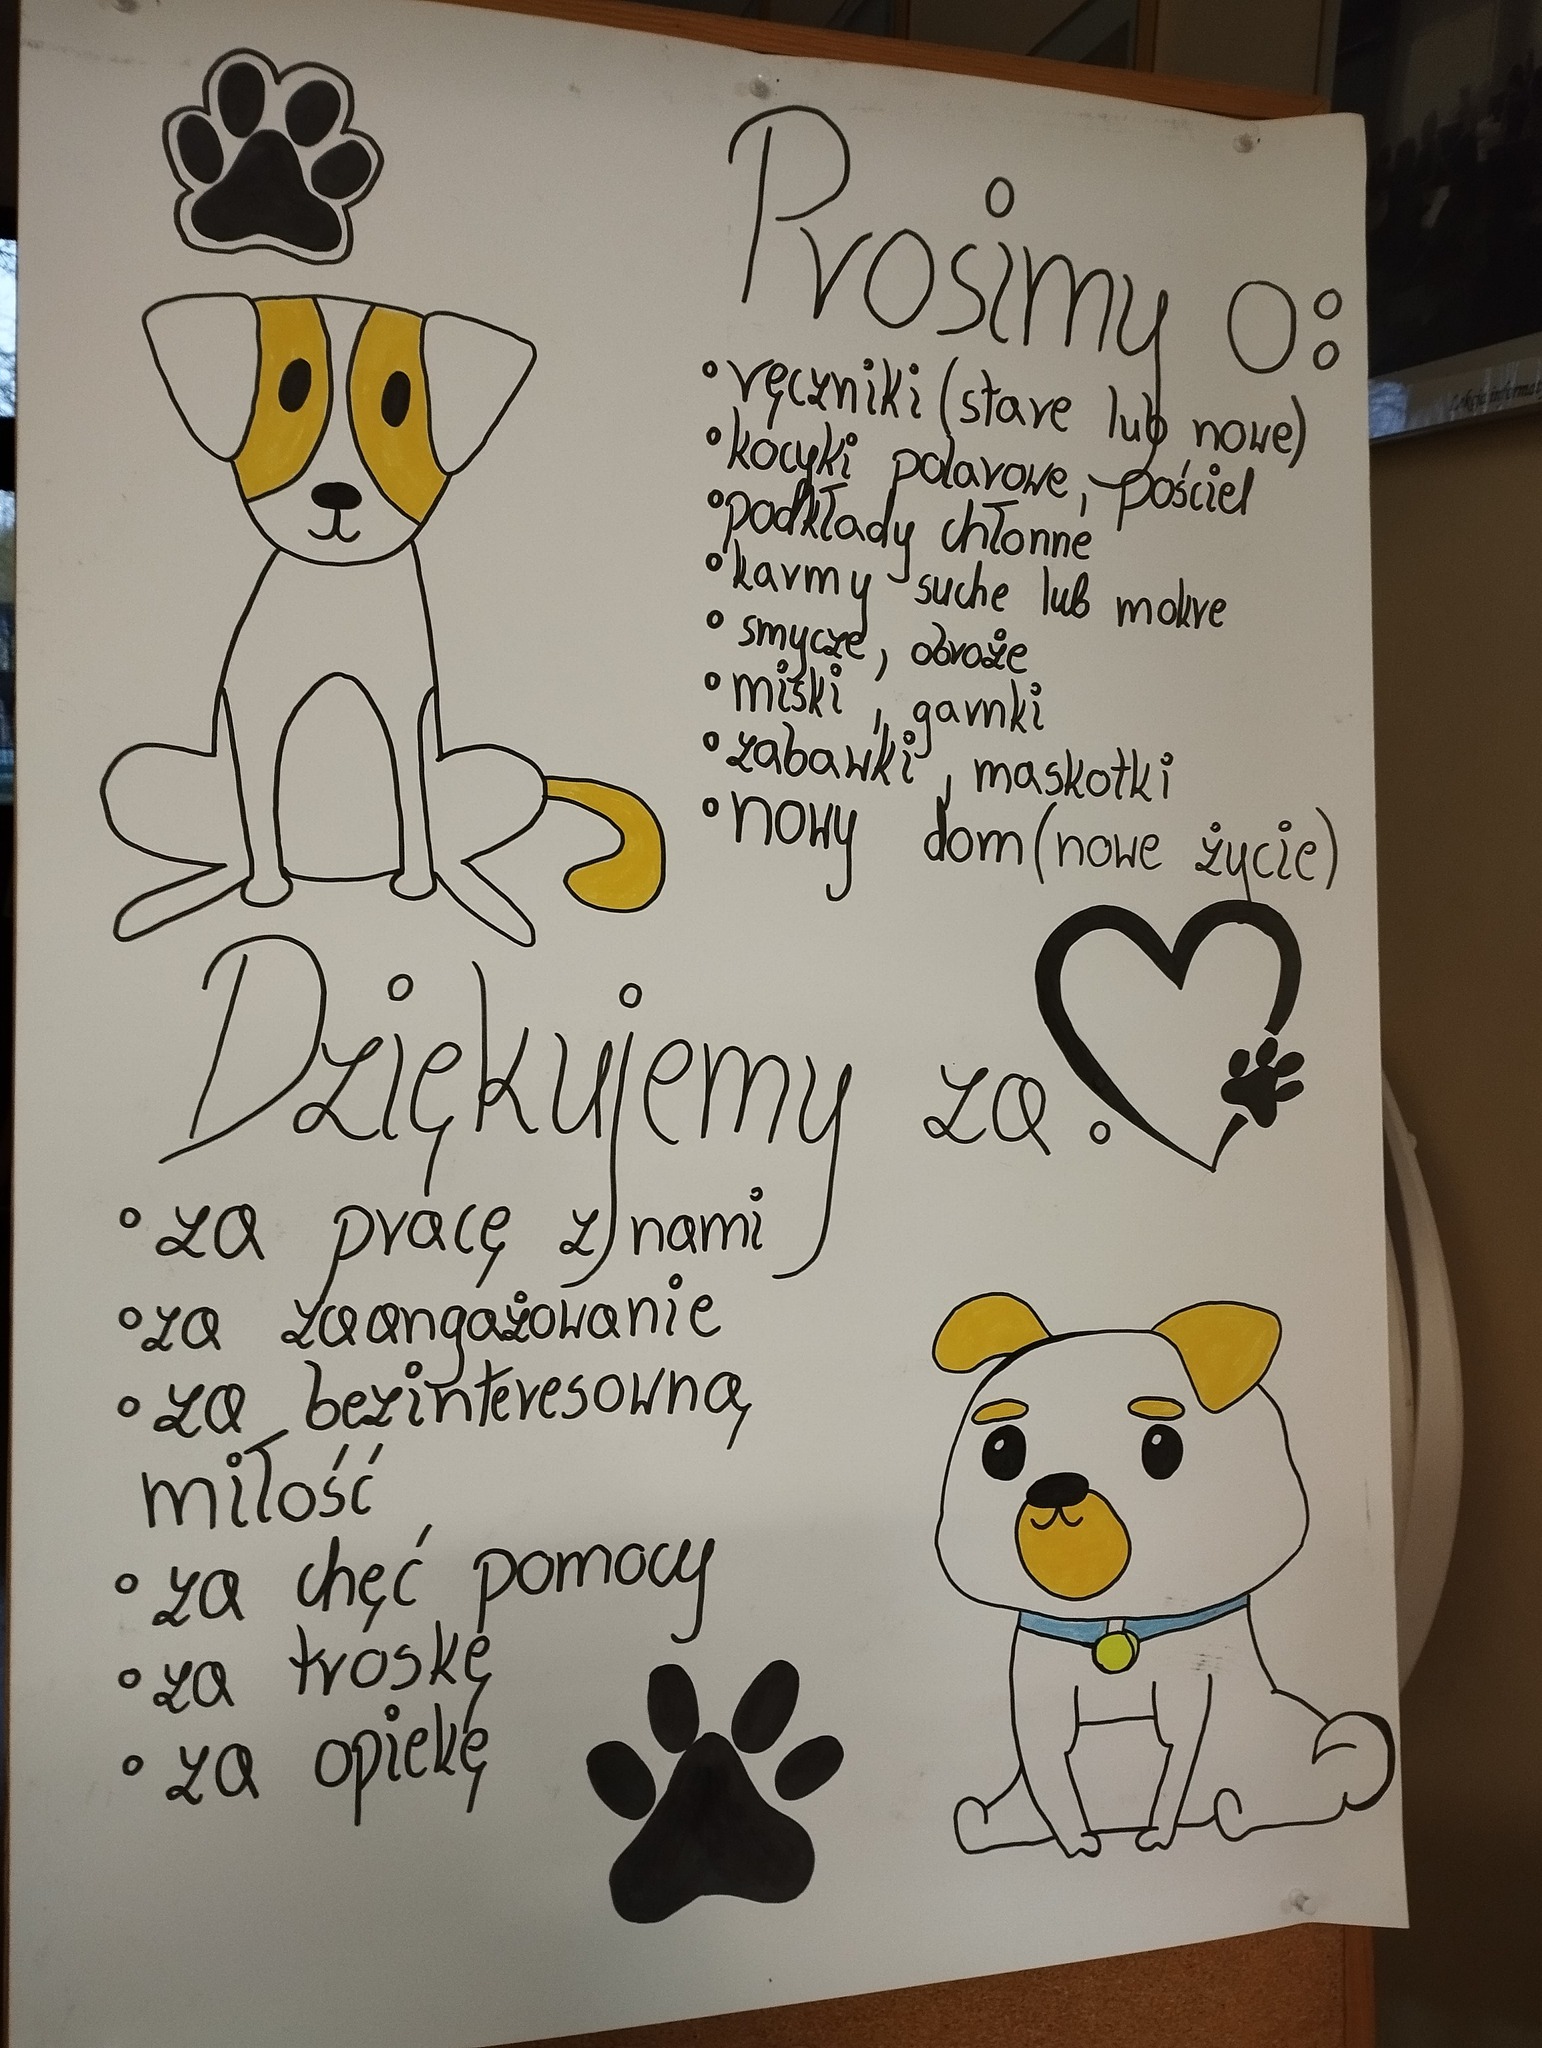 Prosimy o:
• ręczniki (stare lub nowe)
• kocyki polarowe, pościel
• podkłady chłonne
• karmy suche lub mokre
• smycze, obroże
• miski, garnki
• zabawki, maskotki
• nowy dom (nowe życie)
Dziękujemy za:
• za pracę z nami
• za zaangażowanie
• za bezinteresowną
miłość
• za chęć pomocy
• za troskę
• za opiekę